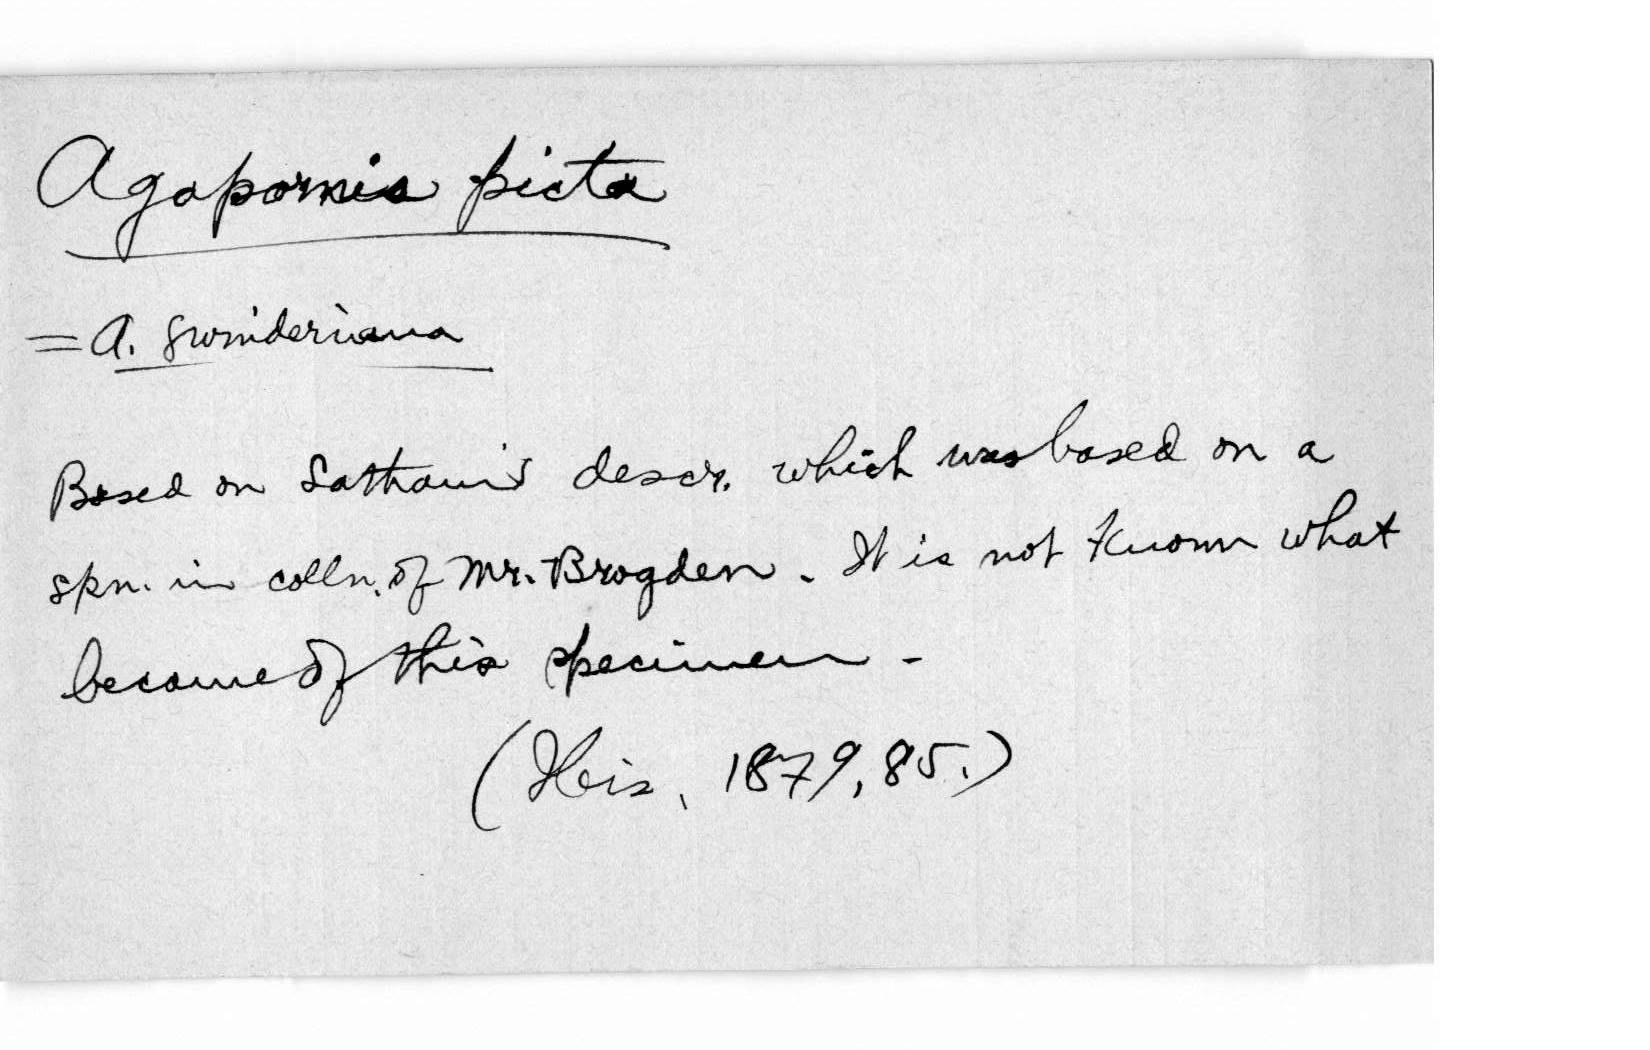 Agapornis picta
= A. swinderiana
Based on Latham's descr. which was based on a
spn. in colln. of Mr. Brogden. It is not known what
became of this specimen -
(Ibis, 1879, 85.)